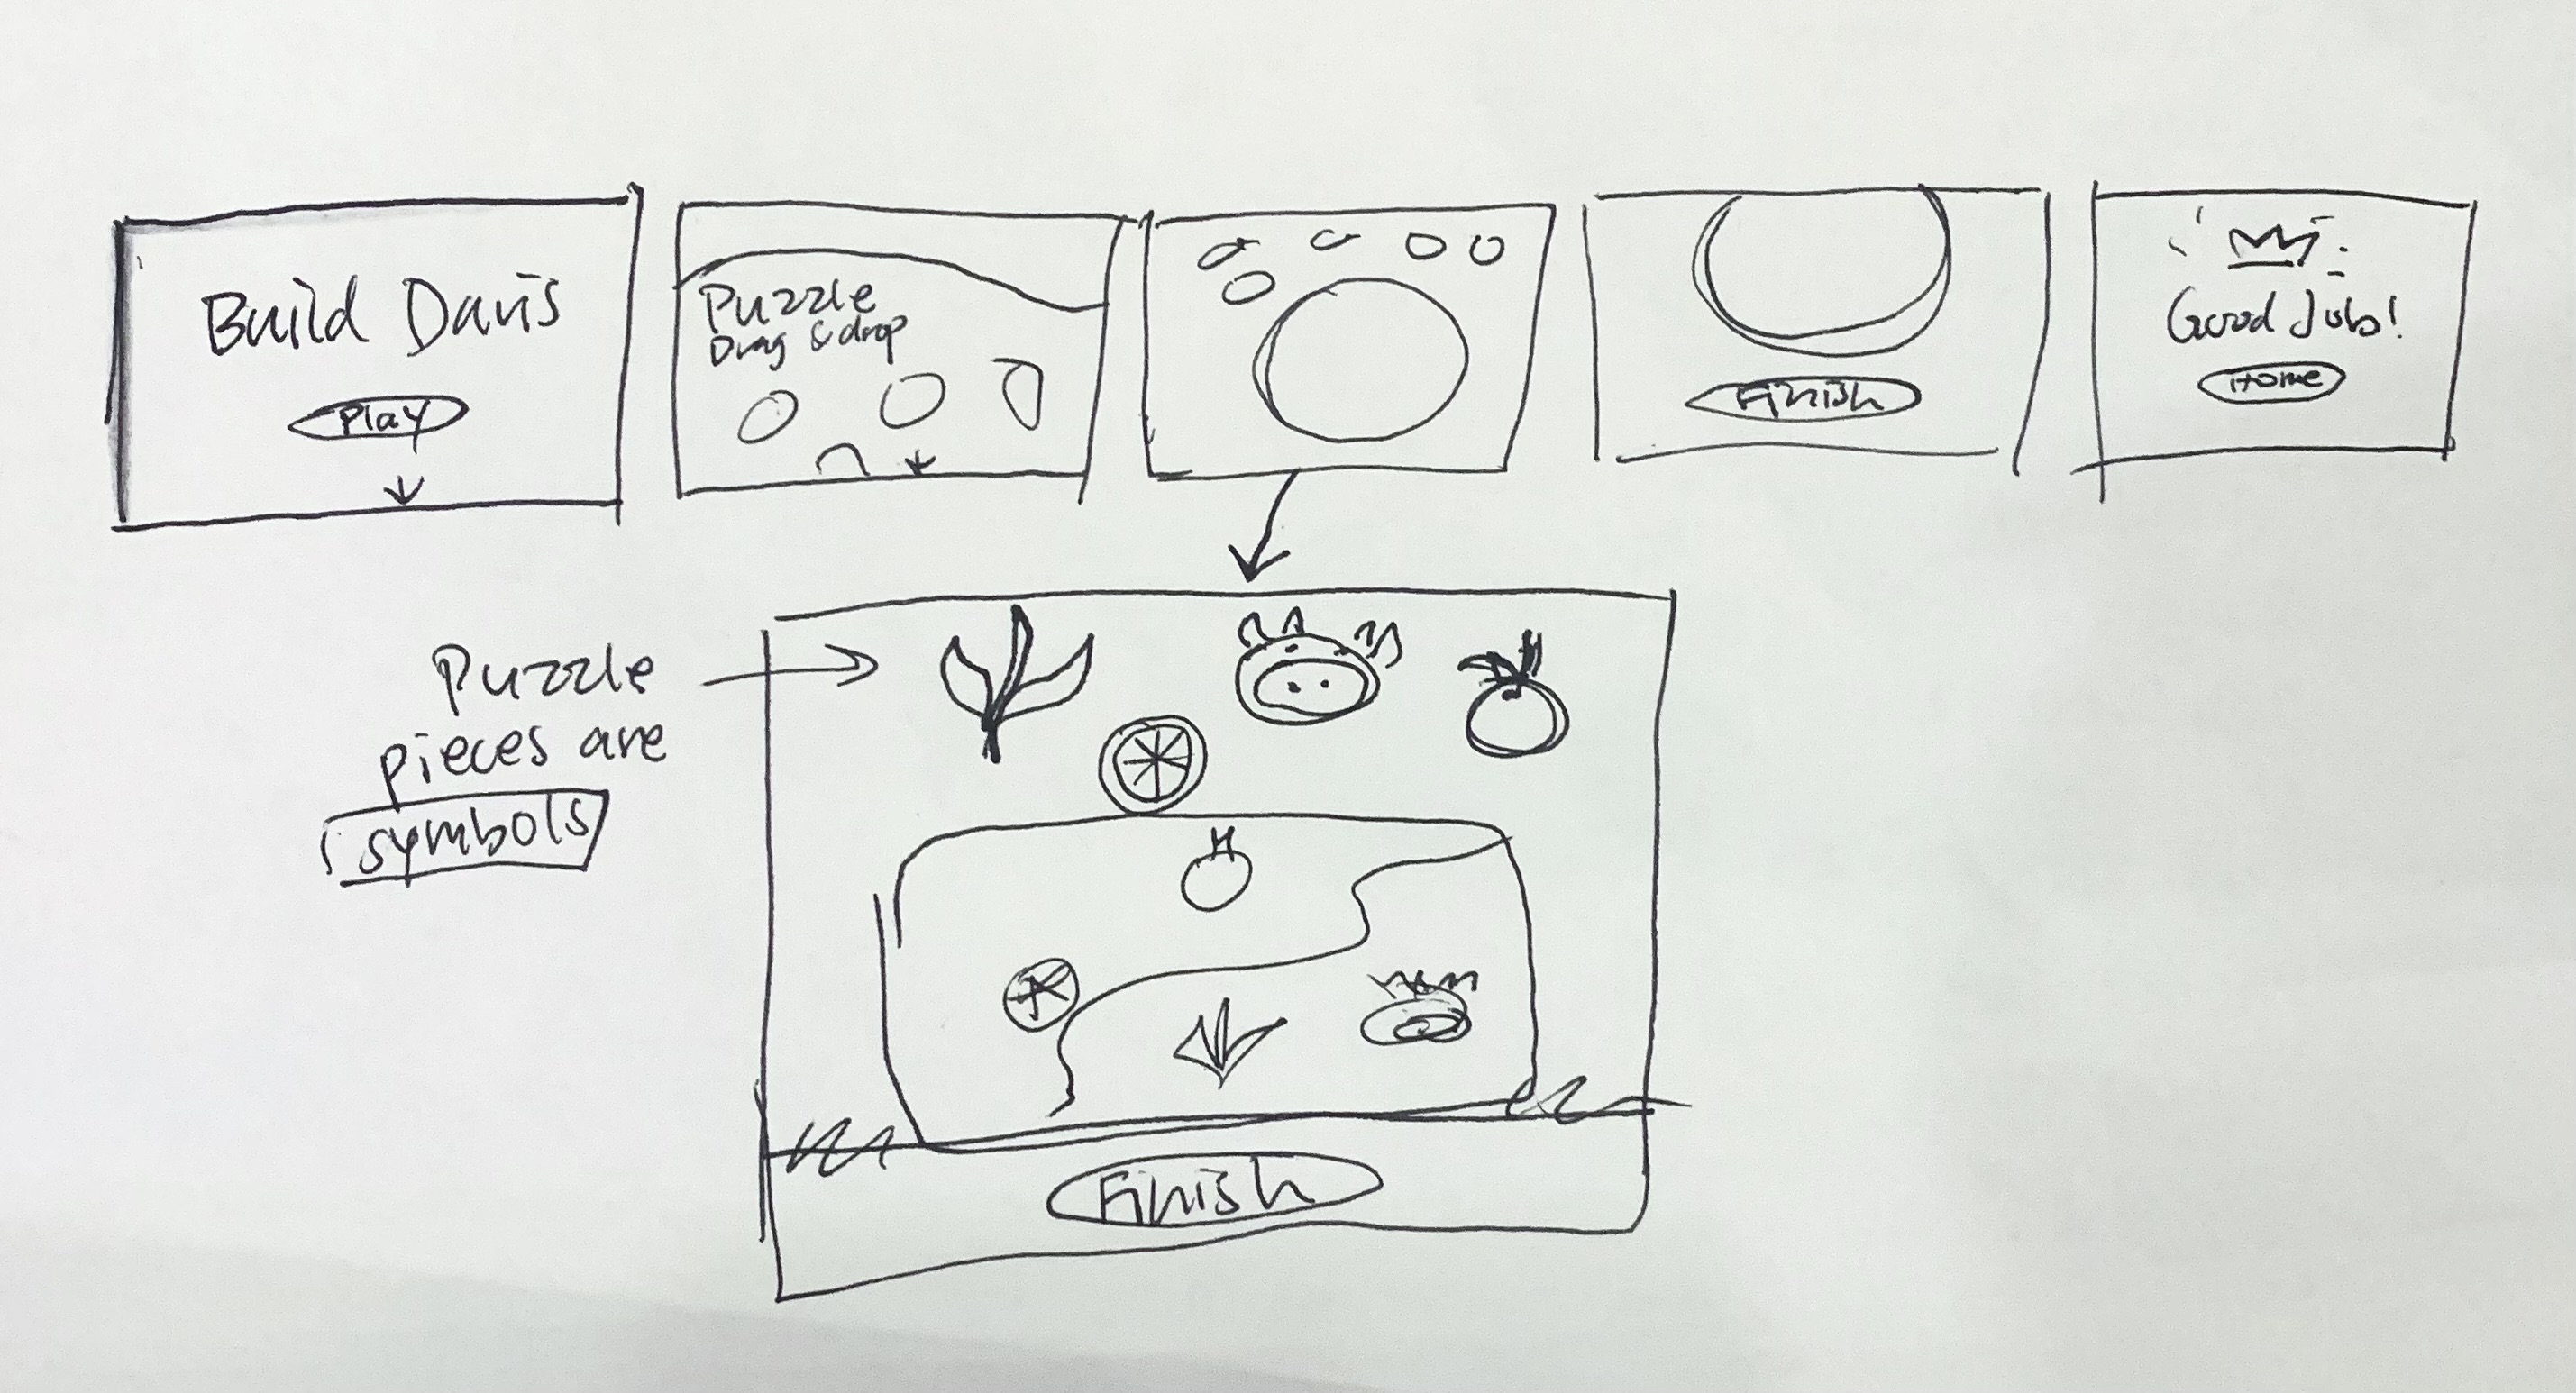 Build Davis
Play
Puzzle
Drag & drop
Finish
Good Job!
Home
Puzzle
pieces are
symbols
Finish